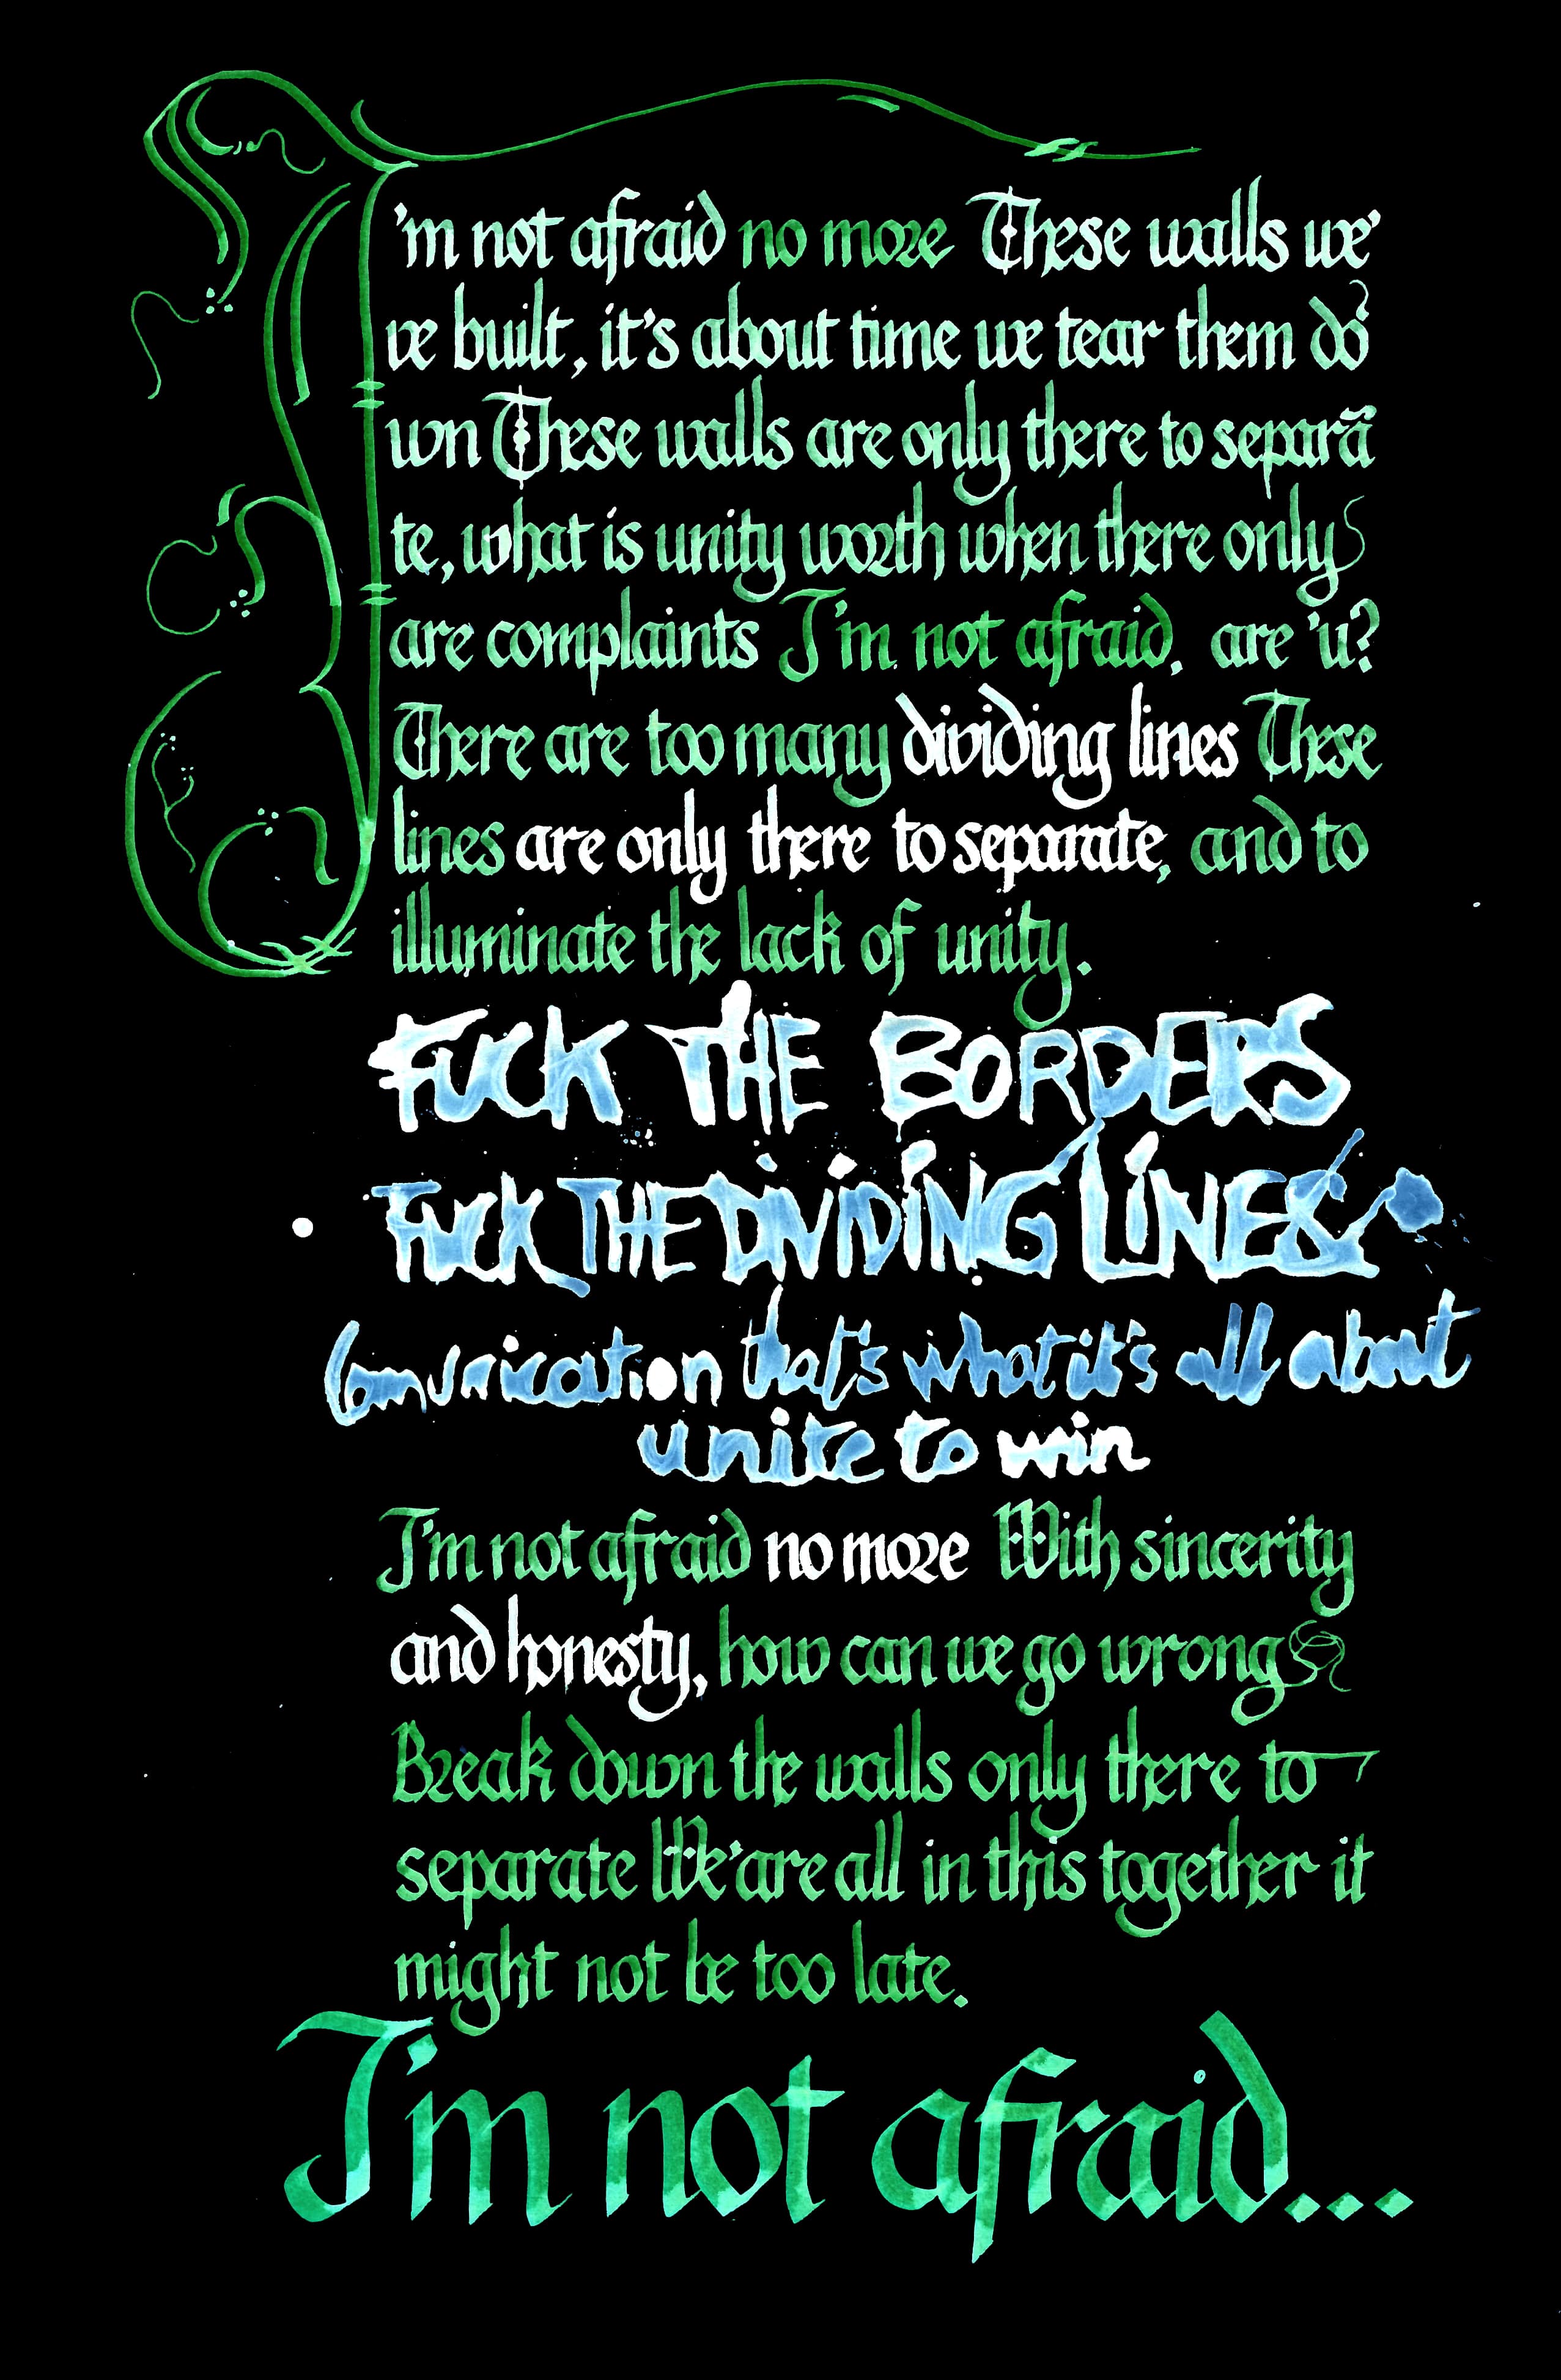 I'm not afraid no more These walls we'
ve built, it's about time we tear them do
wn These walls are only there to separa
te, what is unity worth when there only
are complaints I'm not afraid. are 'u?
There are too many dividing lines These
lines are only there to separate, and to
illuminate the lack of unity.
FUCK THE BORDERS
FUCK THE DIVIDING LINES
Comunication that's what it's all about
unite to win
I'm not afraid no more With sincerity
and honesty, how can we go wrong
Break down the walls only there to
separate We'are all in this together it
might not be too late.
I'm not afraid...